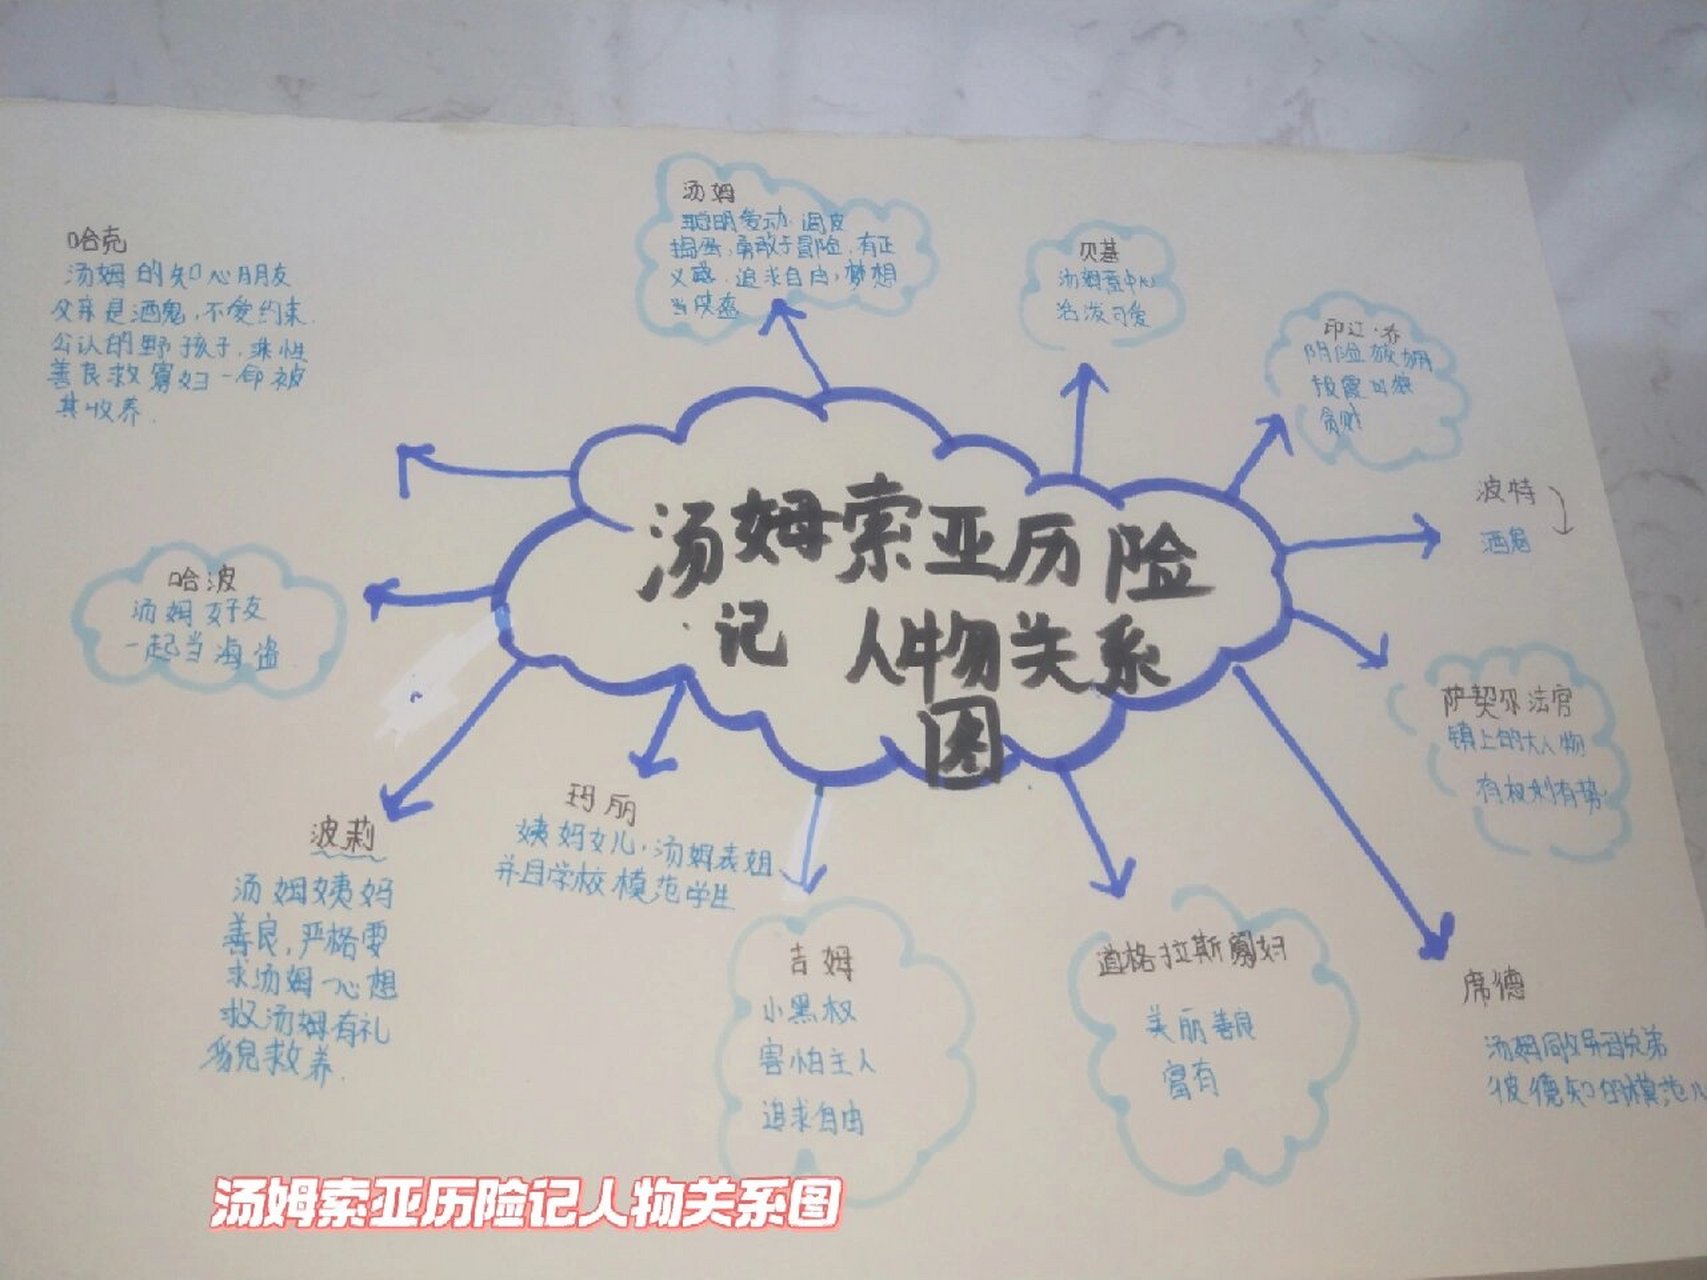 汤姆索亚历险
记 人物关系
图
汤姆
聪明爱动 调皮
捣蛋,勇敢于冒险,有正
义感.追求自由,梦想
当侠盗
贝基
汤姆意中人
活泼可爱
印江·乔
阴险
贪财
波特
酒鬼
萨契尔法官
镇上的大人物
有权利有势
席德
汤姆同父异母兄弟
彼德知的模范
道格拉斯寡妇
美丽善良
富有
吉姆
小黑奴
害怕主人
追求自由
玛丽
姨妈女儿,汤姆表姐
并且学校模范学生
波莉
汤姆姨妈
善良,严格要
求汤姆一心想
汤姆有礼
教养.
哈波
汤姆好友
一起当海盗
哈克
汤姆的知心朋友
父亲是酒鬼,不爱约束.
公认的野孩子,
善良救寡妇一命被
其收养.
汤姆索亚历险记人物关系图